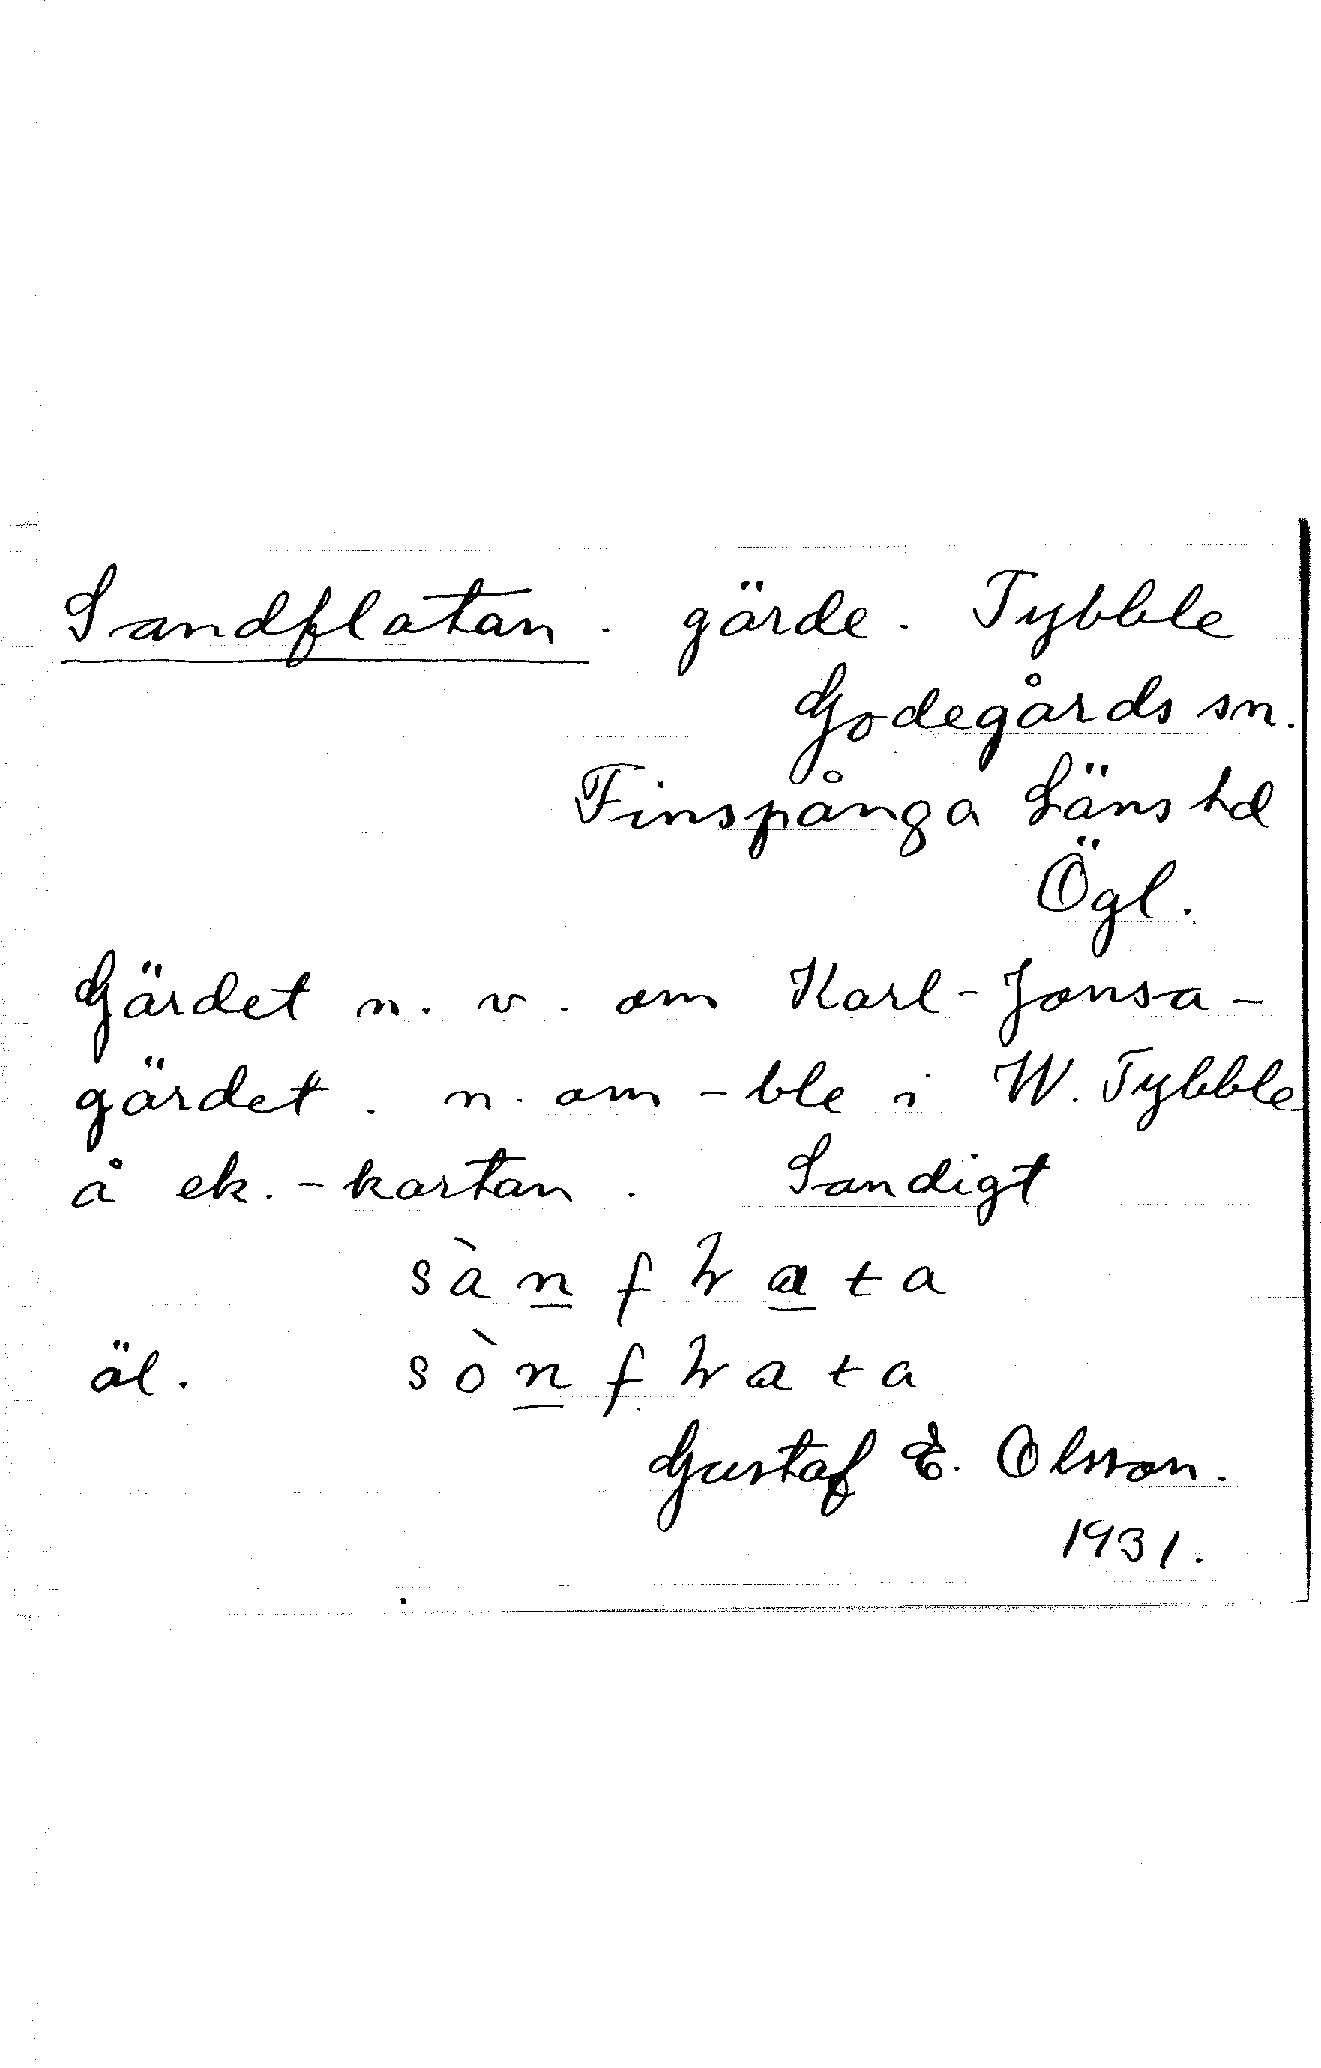 Sandflatan. gärde. Tybble
Godegårds sn.
Finspånga Läns hd
Ögl.
Gärdet n. v. om Karl-Jonsa-
gärdet. n. om -ble i W. Tybble
å ek.-kartan. Sandigt
sànfꝇata
äl. sònfꝇata
Gustaf E. Olsson.
1931.